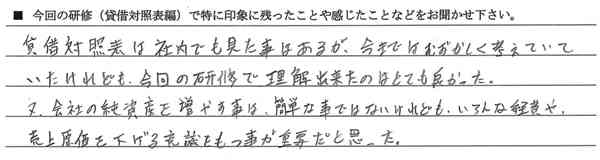 ■ 今回の研修（貸借対照表編）で特に印象に残ったことや感じたことなどをお聞かせ下さい。
貸借対照表は社内でも見た事はあるが、今まではむずかしく考えていて
いたけれども、今回の研修で理解出来たのはとても良かった。
又、会社の純資産を増やす事は、簡単な事ではないけれども、いろんな経費や、
売上原価を下げる意識をもつ事が重要だと思った。